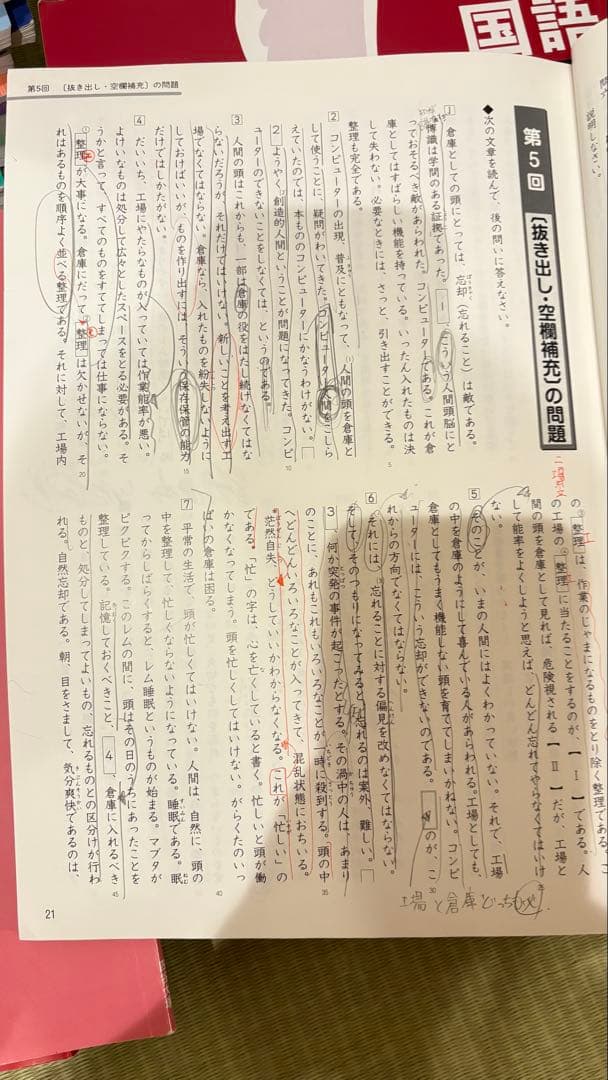 国語
説明しなさい。
第5回 〔抜き出し・空欄補充〕の問題
第5回 〔抜き出し・空欄補充〕の問題
◆次の文章を読んで、後の問いに答えなさい。
1 倉庫としての頭にとっては、忘却（忘れること）は敵である。
博識は学問のある証拠であった。 1 、こういう人間頭脳にと
っておそるべき敵があらわれた。コンピューターである。これが倉
庫としてはすばらしい機能を持っている。いったん入れたものは決
して失わない。必要なときには、さっと、引き出すことができる。
整理も完全である。
2 コンピューターの出現、普及にともなって、人間の頭を倉庫と
して使うことに、疑問がわいてきた。コンピューター人間をこしら
えていたのでは、本もののコンピューターにかなうわけがない。
2 ようやく創造的人間ということが問題になってきた。コンピ
ューターのできないことをしなくては、というのである。
3 人間の頭はこれからも、一部は倉庫の役をはたし続けなくてはな
らないだろうが、それだけではいけない。新しいことを考え出す工
場でなくてはならない。倉庫なら、入れたものを紛失しないように
しておけばいいが、ものを作り出すには、そういう保存保管の能力
だけではしかたがない。
4 だいいち、工場にやたらなものが入っていては作業能率が悪い。
よけいなものは処分して広々としたスペースをとる必要がある。そ
うかと言って、すべてのものをすててしまっては仕事にならない。
①整理が大事になる。倉庫にだって②整理は欠かせないが、そ
れはあるものを順序よく並べる整理である。それに対して、工場内
の③整理は、作業のじゃまになるものをとり除く整理である。
この工場の④整理に当たることをするのが、【 Ⅰ 】である。人
間の頭を倉庫として見れば、危険視される【 Ⅱ 】だが、工場と
して能率をよくしようと思えば、どんどん忘れてやらなくてはいけ
ない。
5 そのことが、いまの人間にはよくわかっていない。それで、工場
の中を倉庫のようにして喜んでいる人があらわれる。工場としても、
倉庫としてもうまく機能しない頭を育ててしまいかねない。コンピ
ューターには、こういう忘却ができないのである。 のが、こ
れからの方向でなくてはならない。
工場と倉庫どっちも
6 それには、忘れることに対する偏見を改めなくてはならない。
そして、そのつもりになってみると、忘れるのは案外、難しい。
3 何か突発の事件が起こったとする。その渦中の人は、あまり
のことに、あれもこれもいろいろなことが一時に殺到する。頭の中
へどんどんいろいろなことが入ってきて、混乱状態におちいる。
茫然自失、どうしていいかわからなくなる。これが「忙しい」の
である。「忙」の字は、心を亡くしていると書く。忙しいと頭が働
かなくなってしまう。頭を忙しくしてはいけない。がらくたのいっ
ぱいの倉庫は困る。
7 平常の生活で、頭が忙しくてはいけない。人間は、自然に、頭の
中を整理して、忙しくならないようになっている。睡眠である。眠
ってからしばらくすると、レム睡眠というものが始まる。マブタが
ピクピクする。このレムの間に、頭はその日のうちにあったことを
整理している。記憶しておくべきこと、 4 、倉庫に入れるべき
ものと、処分してしまってよいもの、忘れるものとの区分けが行わ
れる。自然忘却である。朝、目をさまして、気分爽快であるのは、
21